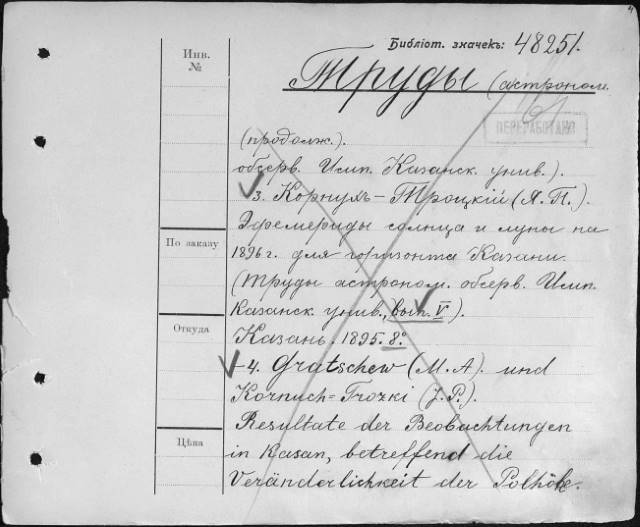 Библіот. значекъ: 48251.
Инв.
№
Труды (астроном.
ПЕРЕРАБОТАНО
(продолж.).
обсерв. Имп. Казанск. унив.).
3. Корнухъ-Троцкій (Я. П.).
Эфемериды солнца и луны на
По заказу
1896 г. для горизонта Казани.
(Труды астроном. обсерв. Имп.
Казанск. унив., вып. V).
Откуда
Казань. 1895. 8°.
4. Gratschew (M. A.) und
Kornuch-Trozki (J. P.).
Resultate der Beobachtungen
Цѣна
in Kasan, betreffend die
Veränderlichkeit der Polhöhe.